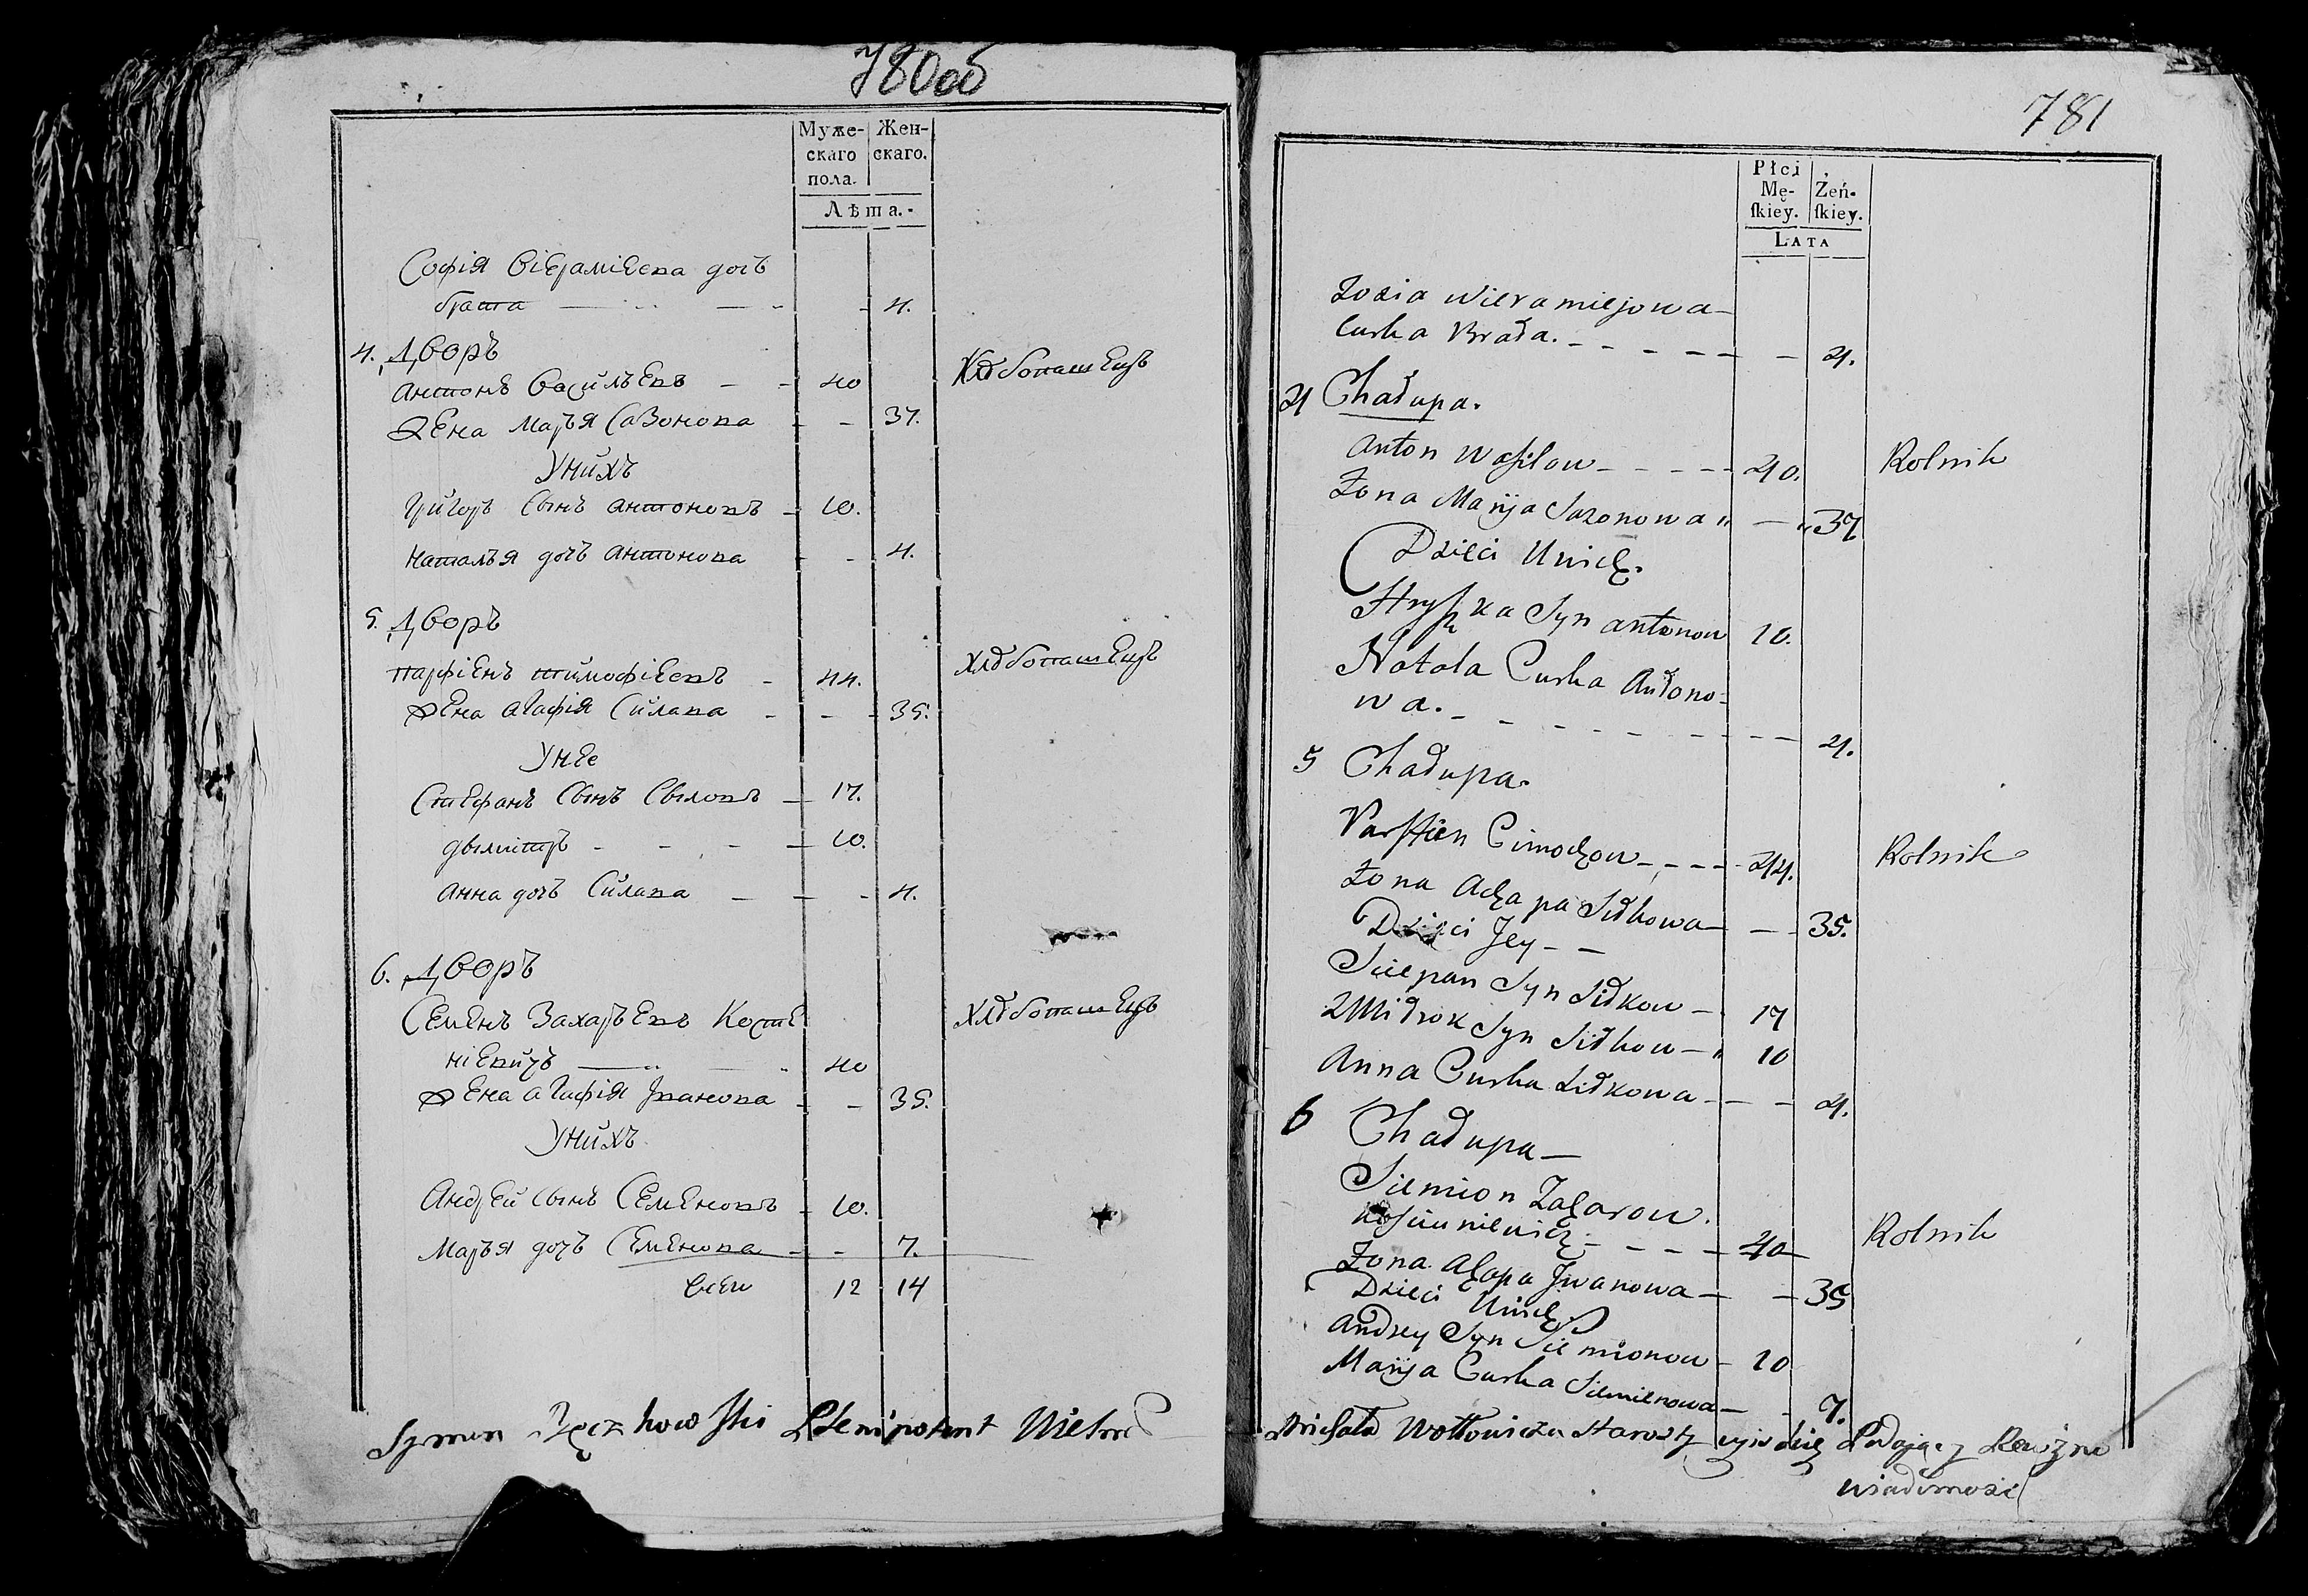 780об
Муже-
скаго
пола.
Жен-
скаго.
Лѣта.
Софія Віерамієєва дочъ
брата — 4.
4. Дворъ
Антонъ Васильевъ - 40 Хлѣбопашецъ
Жена Марья Сазонова - 37.
У нихъ
Григоръ Сынъ Антоновъ - 10.
Наталья дочъ Антонова - 4.
5. Дворъ
Парфіенъ Тимофіеевъ - 44. Хлѣбопашецъ
Жена Агафія Силава - 35.
У нее
Стефанъ Сынъ Сыловъ - 17.
Дымитръ - 10.
Анна дочъ Силава - 4.
6. Дворъ
Семенъ Захарьевъ Косте Хлѣбопашецъ
ніевичъ — 40
Жена Агафія Іванова - 35.
У нихъ
Андрей Сынъ Семеновъ - 10.
Марья дочъ Семенова - 7.
12 14
Szymon Plenipotent
781
Płci
Mę-
ſkiey.
Żeń-
ſkiey.
LATA
Zosia Wieramiejowa
Curka Brata. - 4.
4 Chałupa.
Anton Wasilow - 40. Rolnik
Żona Maryja Sazonowa - 37
Dzieci U nich.
Hryszka Syn Antonow 10.
Natala Curka Antono-
wa. - 4.
5 Chałupa.
Parffien Cimochow - 44. Rolnik
Żona Achapa Sidkowa - 35.
Dzieci Jey -
Sciepan Syn Sidkow - 17
Zmitrok Syn Sidkow - 10
Anna Curka Sidkowa - 4.
6 Chałupa
Siemion Zacharow.
Kościeniewicz - 40 Rolnik
Żona Ahapa Jwanowa - 35
Dzieci U nich
Andrey Syn Siemionow - 10
Maryja Curka Siemienowa - 7.
Michała Wołłowicza Starosty Podający Rewizyine
wiadomość